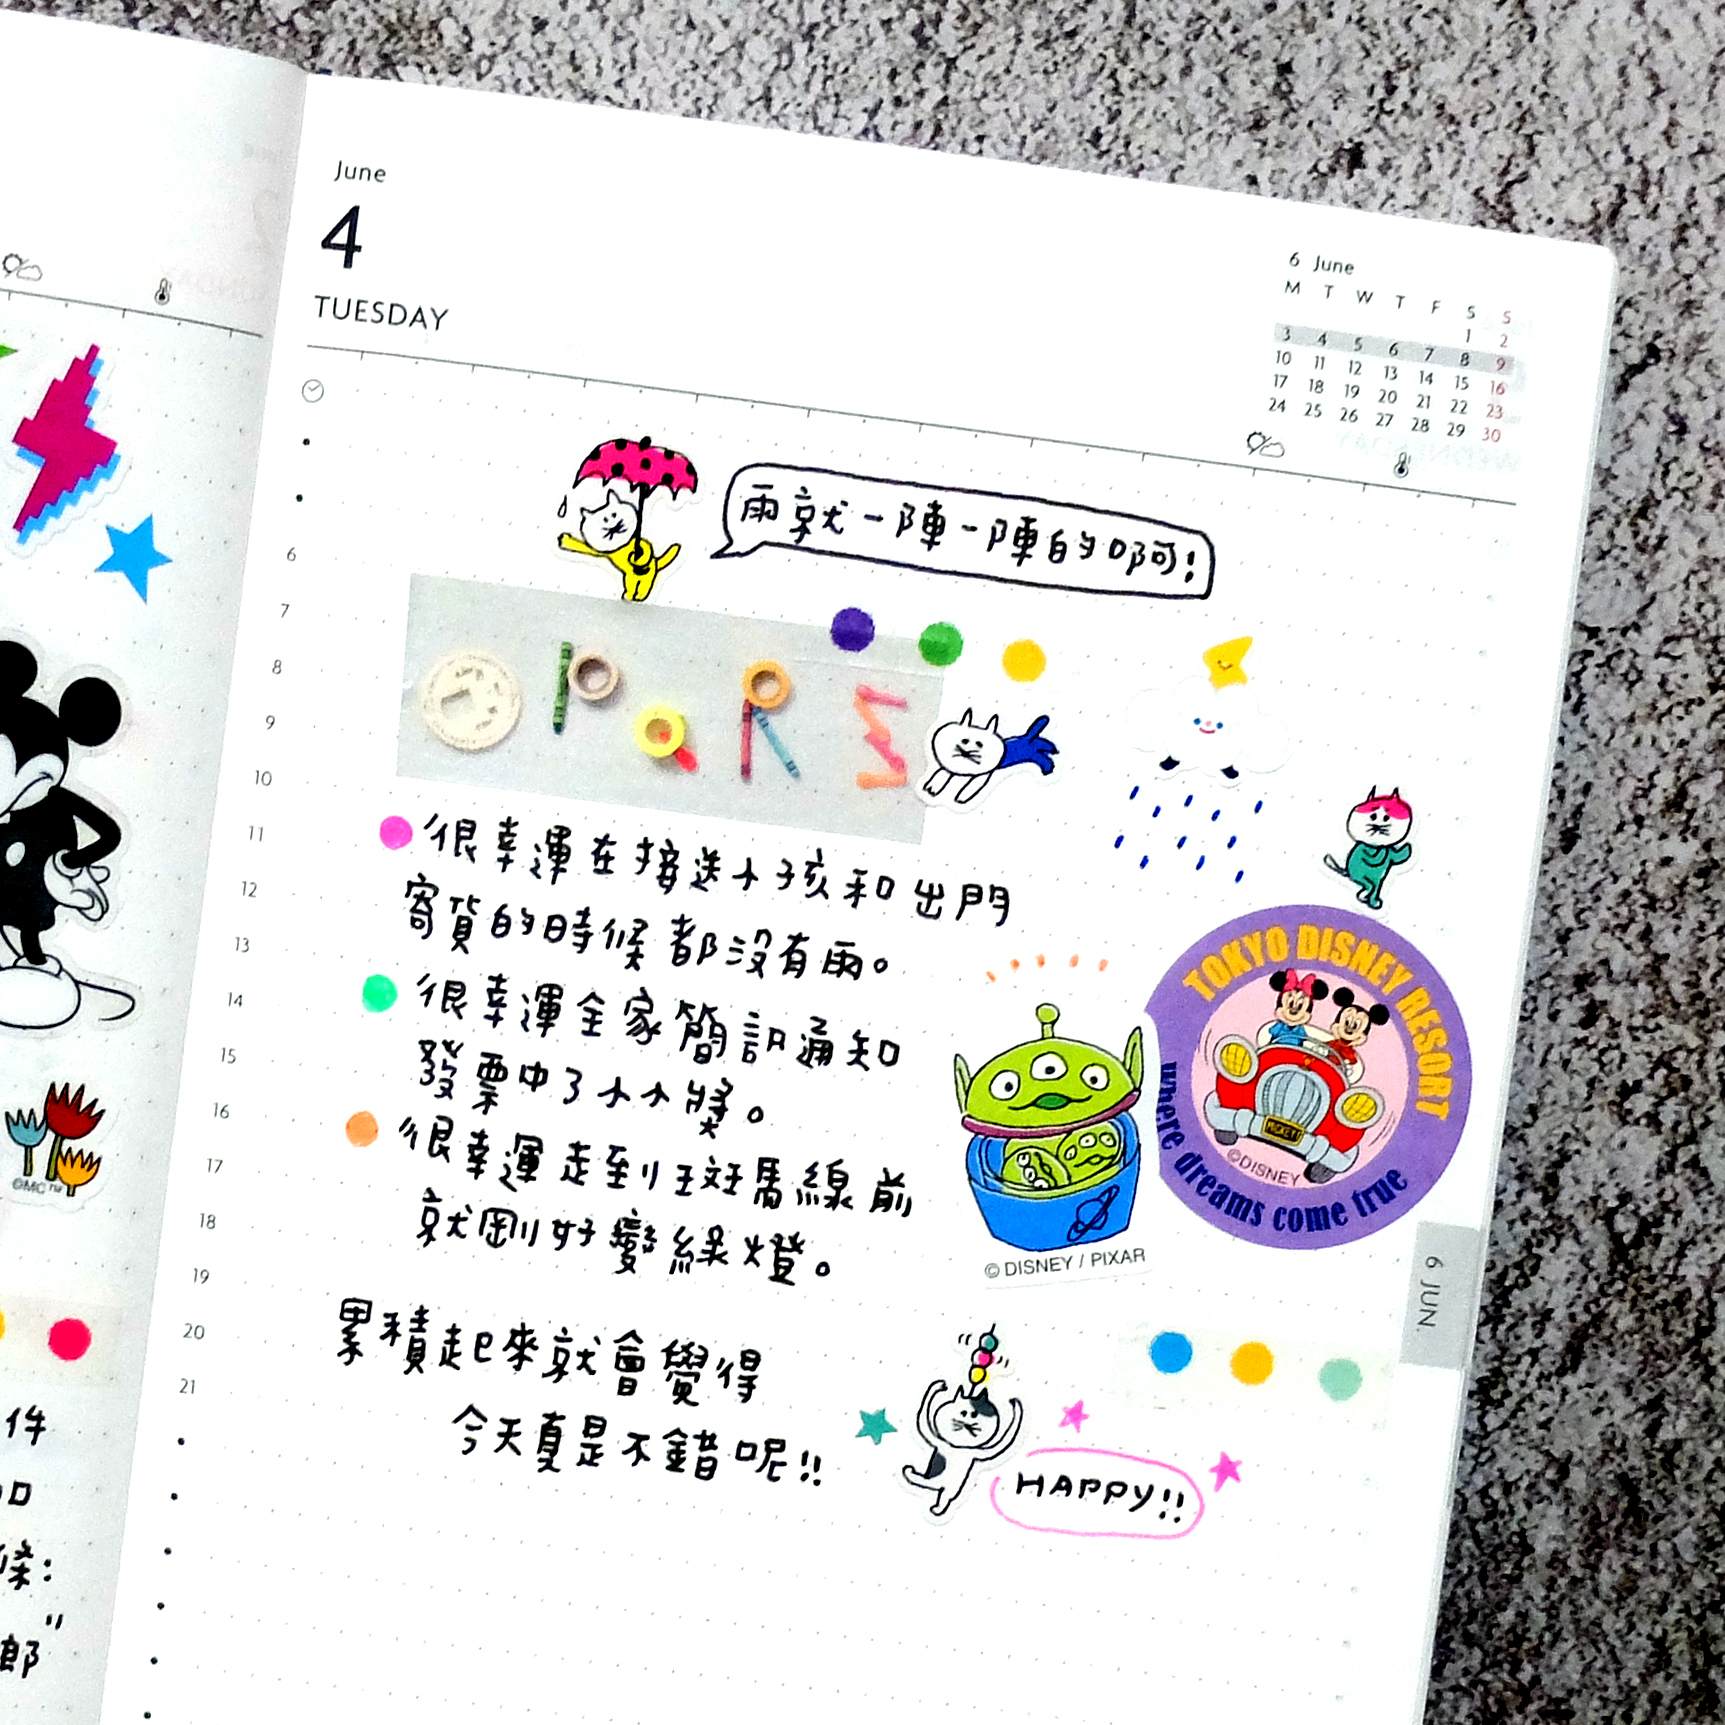 June
4
TUESDAY
6 June
M T W T F S S
1 2
3 4 5 6 7 8 9
10 11 12 13 14 15 16
17 18 19 20 21 22 23
24 25 26 27 28 29 30
雨就一陣一陣的啊!
6
7
8
9
10
11
12
13
14
15
16
17
18
19
20
21
很幸運在接送小孩和出門
寄貨的時候都沒有雨。
很幸運全家簡訊通知
發票中了小小獎。
很幸運走到斑馬線前
就剛好變綠燈。
累積起來就會覺得
今天真是不錯呢!!
TOKYO DISNEY RESORT
MICKEY
©DISNEY
where dreams come true
© DISNEY / PIXAR
HAPPY!!
6 JUN.
©MC™
件
候:
郎"